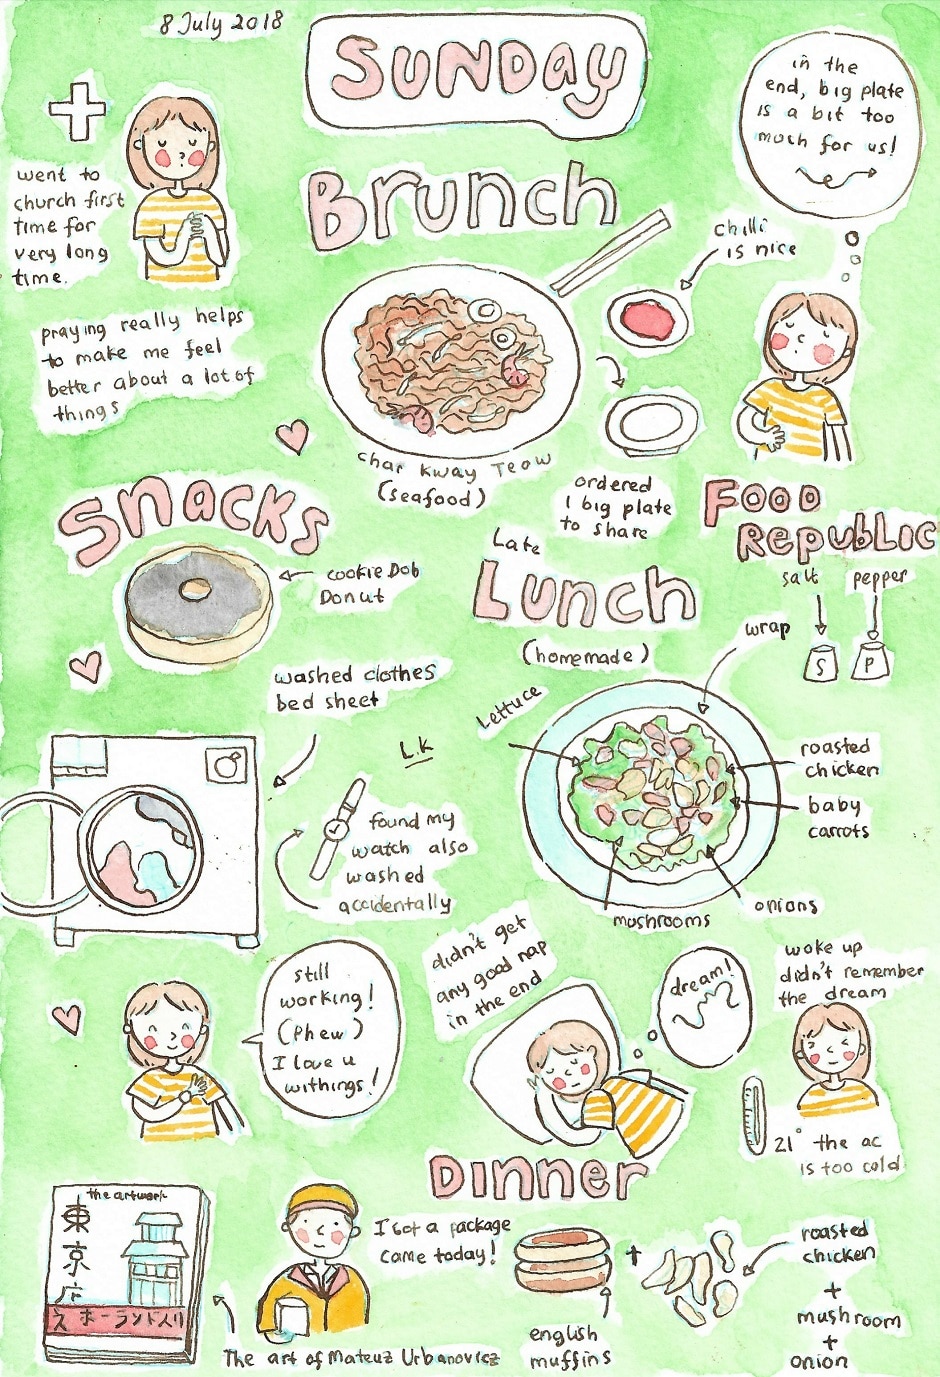 8 July 2018
SUNDAY
went to
church first
time for
very long
time.
praying really helps
to make me feel
better about a lot of
things
Brunch
in the
end, big plate
is a bit too
much for us!
chilli
is nice
char kway Teow
(seafood)
ordered
1 big plate
to share
Food
Republic
Snacks
cookie Dob
Donut
Late
Lunch
(homemade)
salt
pepper
S
P
wrap
Lettuce
roasted
chicken
baby
carrots
onions
mushrooms
washed clothes
bed sheet
L.K
found my
watch also
washed
accidentally
still
working!
(phew)
I love u
withings!
didn't get
any good nap
in the end
dream!
woke up
didn't remember
the dream
21° the ac
is too cold
Dinner
the artwork
東
京
ホーランド入り
I got a package
came today!
The art of Mateuz Urbanovicz
english
muffins
+
roasted
chicken
+
mushroom
+
onion